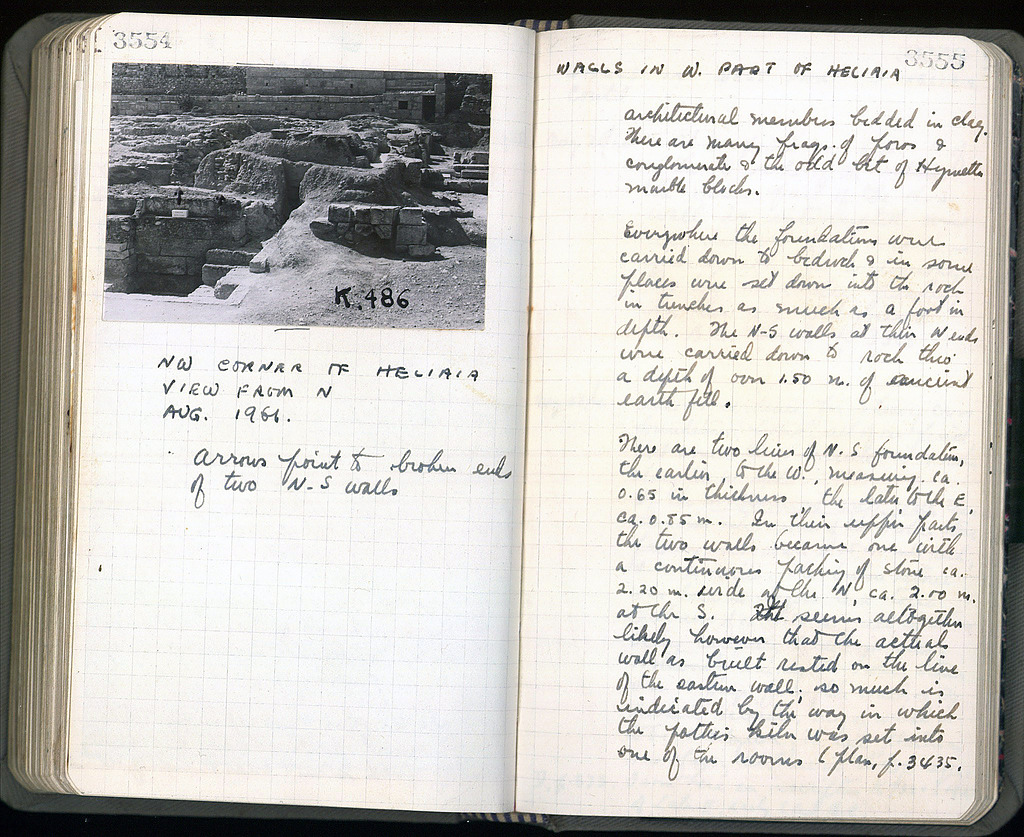 3554
K.486
NW CORNER OF HELIAIA
VIEW FROM N
AUG. 1961.
Arrows point to broken ends
of two N-S walls
3555
WALLS IN W. PART OF HELIAIA
architectural members bedded in clay.
There are many frags. of poros &
conglomerate & the odd bit of Hymettian
marble blocks.
Everywhere the foundations were
carried down to bedrock & in some
places were set down into the rock
in trenches as much as a foot in
depth. The N-S walls at their N ends
were carried down to rock thro'
a depth of over 1.50 m. of ancient
earth fill.
There are two lines of N-S foundation,
the earlier, to the W., measuring ca.
0.65 in thickness the later to the E,
ca. 0.85 m. In their upper parts
the two walls became one with
a continuous packing of stone ca.
2.20 m. wide at the N, ca. 2.00 m.
at the S. It seems altogether
likely however that the actual
wall as built rested on the line
of the eastern wall; so much is
indicated by the way in which
the potter's kiln was set into
one of the rooms (plan, p. 3435.